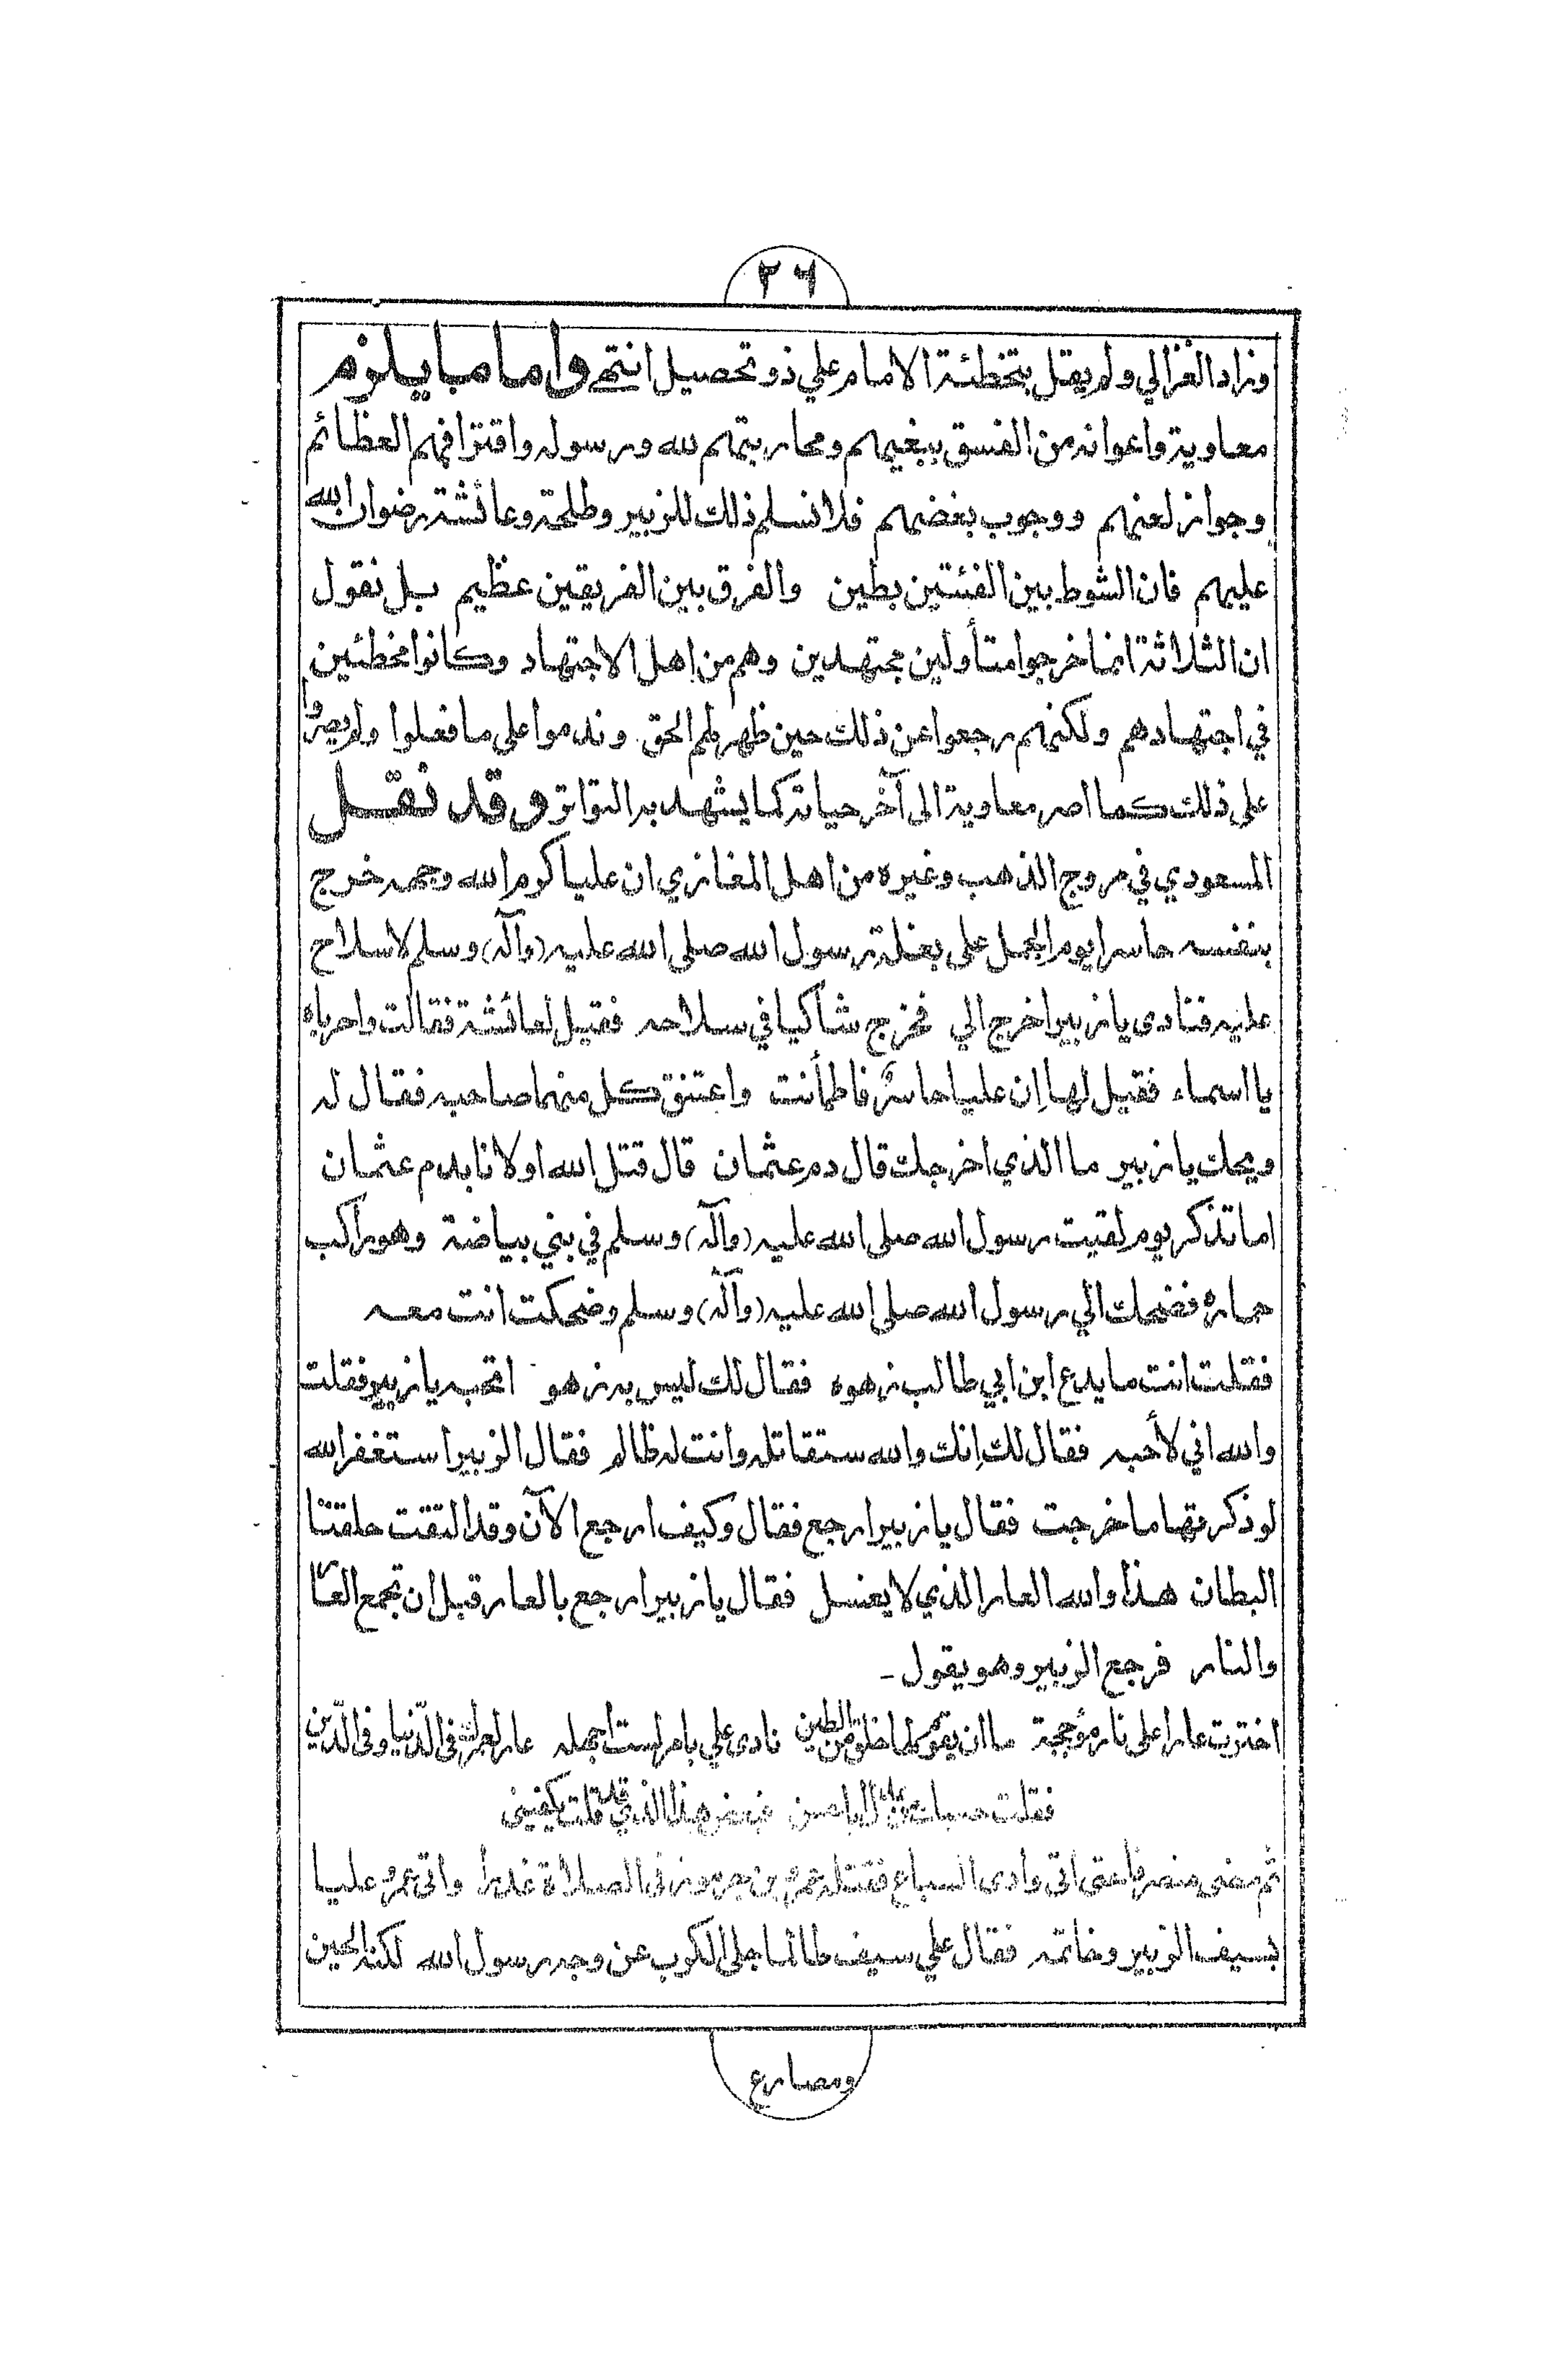 ٢٦
وزاد الغزالي ولم يقل بتخطئة الامام علي ذو تحصيل انتهى واما ما يلزم
معاوية واعوانه من الفسق ببغيهم ومحاربتهم لله ورسوله واقترافهم العظائم
وجواز لعنهم ووجوب بغضهم فلا نسلم ذلك للزبير وطلحة وعائشة رضوان الله
عليهم فان الشوط بين الفئتين بطين والفرق بين الفريقين عظيم بل نقول
ان الثلاثة انما خرجوا متأولين مجتهدين وهم من اهل الاجتهاد وكانوا مخطئين
في اجتهادهم ولكنهم رجعوا عن ذلك حين ظهر لهم الحق وندموا على ما فعلوا ولم يصروا
على ذلك كما اصر معاوية الى آخر حياته كما يشهد به التواتر وقد نقل
المسعودي في مروج الذهب وغيره من اهل المغازي ان عليا كرم الله وجهه خرج
بنفسه حاسرا يوم الجمل على بغلة رسول الله صلى الله عليه (وآله) وسلم لا سلاح
عليه فنادى يا زبير اخرج الي فخرج شاكيا في سلاحه فقيل لعائشة فقالت واحرباه
يا اسماء فقيل لها اِن عليا حاسرٌ فاطمأنت واعتنق كل منهما صاحبه فقال له
ويحك يا زبير ما الذي اخرجك قال دم عثمان قال قتل الله اولانا بدم عثمان
اما تذكر يوم لقيت رسول الله صلى الله عليه (وآله) وسلم في بني بياضة وهو راكب
حماره فضحك الي رسول الله صلى الله عليه (وآله) وسلم وضحكت انت معه
فقلت انت ما يدع ابن ابي طالب زهوه فقال لك ليس به زهو اتحبه يا زبير فقلت
والله اني لأحبه فقال لك اِنك والله ستقاتله وانت له ظالم فقال الزبير استغفر الله
لو ذكرتها ما خرجت فقال يا زبير ارجع فقال وكيف ارجع الآن وقد التقت حلقتا
البطان هذا والله العار الذي لا يغسل فقال يا زبير ارجع بالعار قبل ان تجمع العار
والنار فرجع الزبير وهو يقول -
اخترت عارا على نار مؤججة ما ان يقوم لها خلق من الطين نادى علي بامر لست اجهله عار لعمرك في الدّنيا وفي الدّين
فقلت حسبك من عذل ابا حسن فبعض هذا الذي قد قلت يكفيني
ثم مضى منصرفا حتى اتى وادي السباع فقتله عمرو بن جرموز في الصلاة غدرا واتى عمرو عليا
بسيف الزبير وخاتمه فقال علي سيف طالما جلى الكرب عن وجه رسول الله لكنه الحين
ومصارع